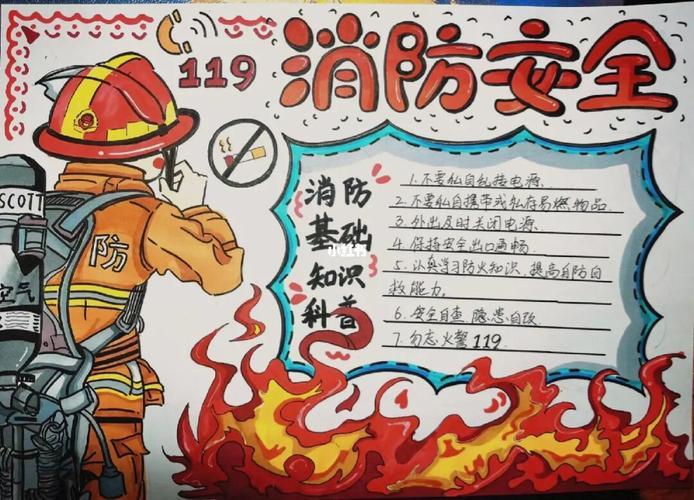 119
消防安全
消防
基础
知识
科普
小红书
1.不要私自乱接电源.
2.不要私自携带或私存易燃物品
3.外出及时关闭电源.
4.保持安全出口通畅.
5.认真学习防火知识,提高自防自
救能力.
6.安全自查 隐患自改.
7.勿忘火警119.
防
SCOTT
空气